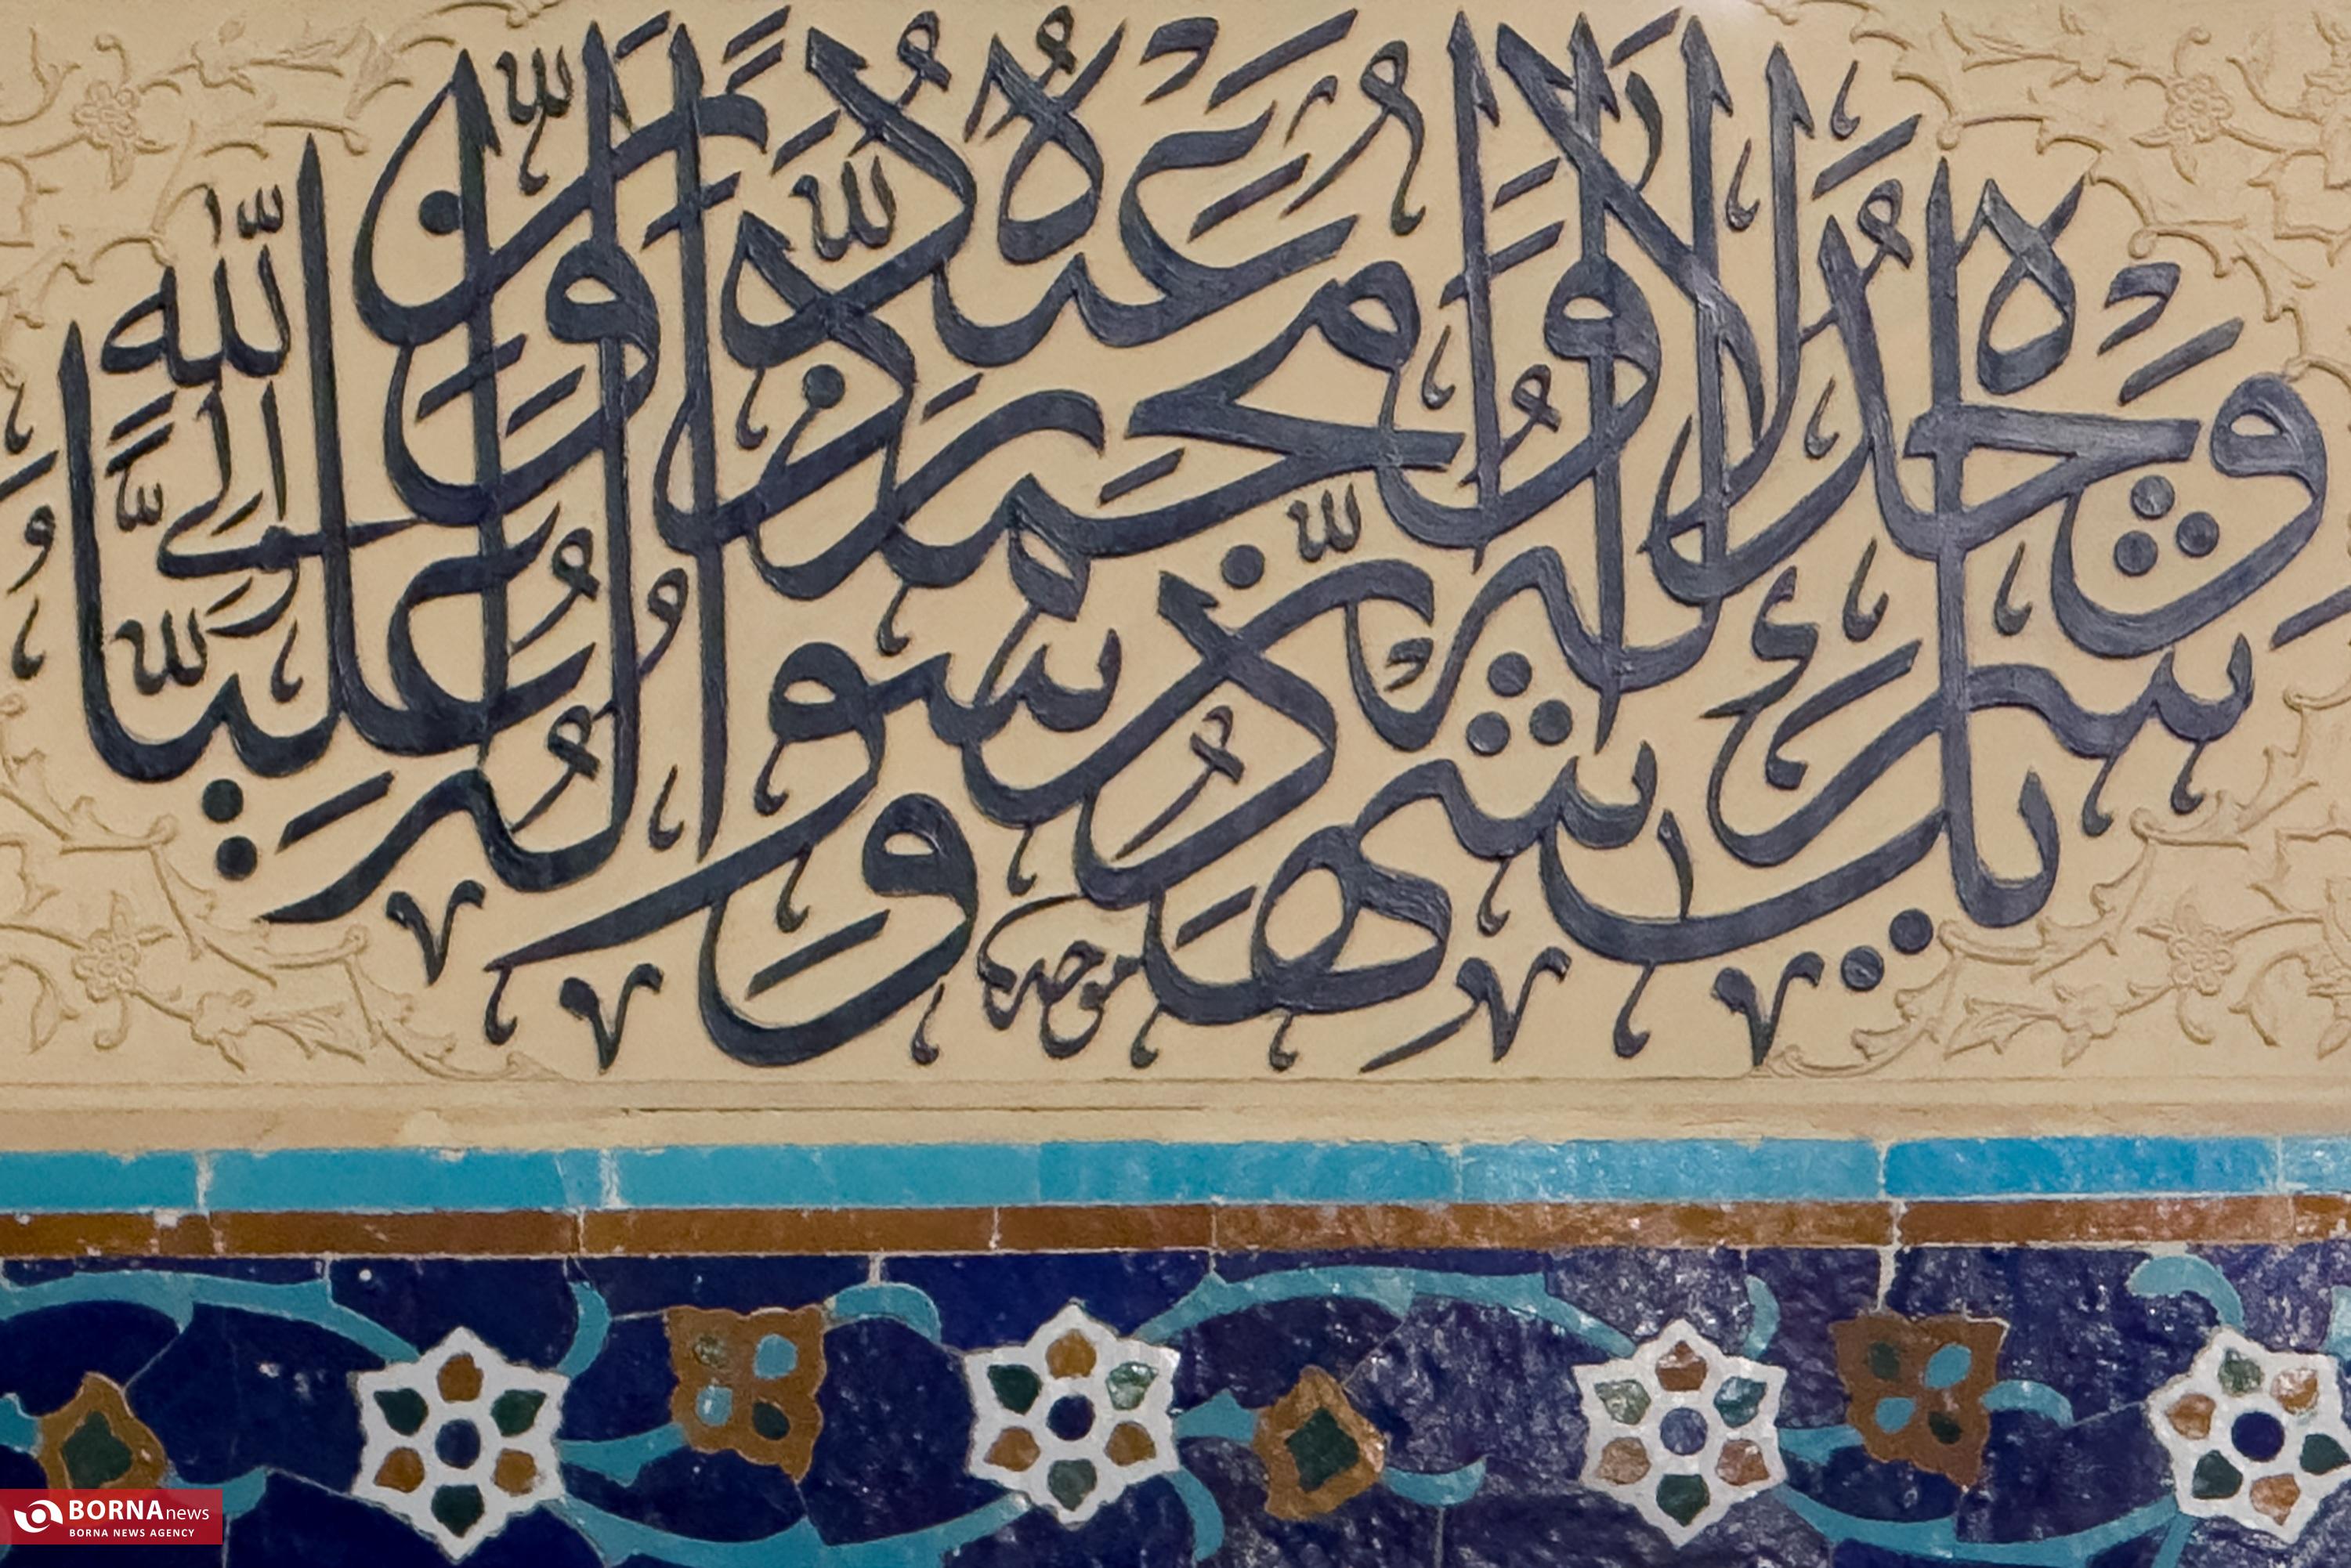 وحده لا شريك له و اشهد ان محمدا عبده و رسوله و ان عليا ولى الله
موحد
BORNAnews
BORNA NEWS AGENCY